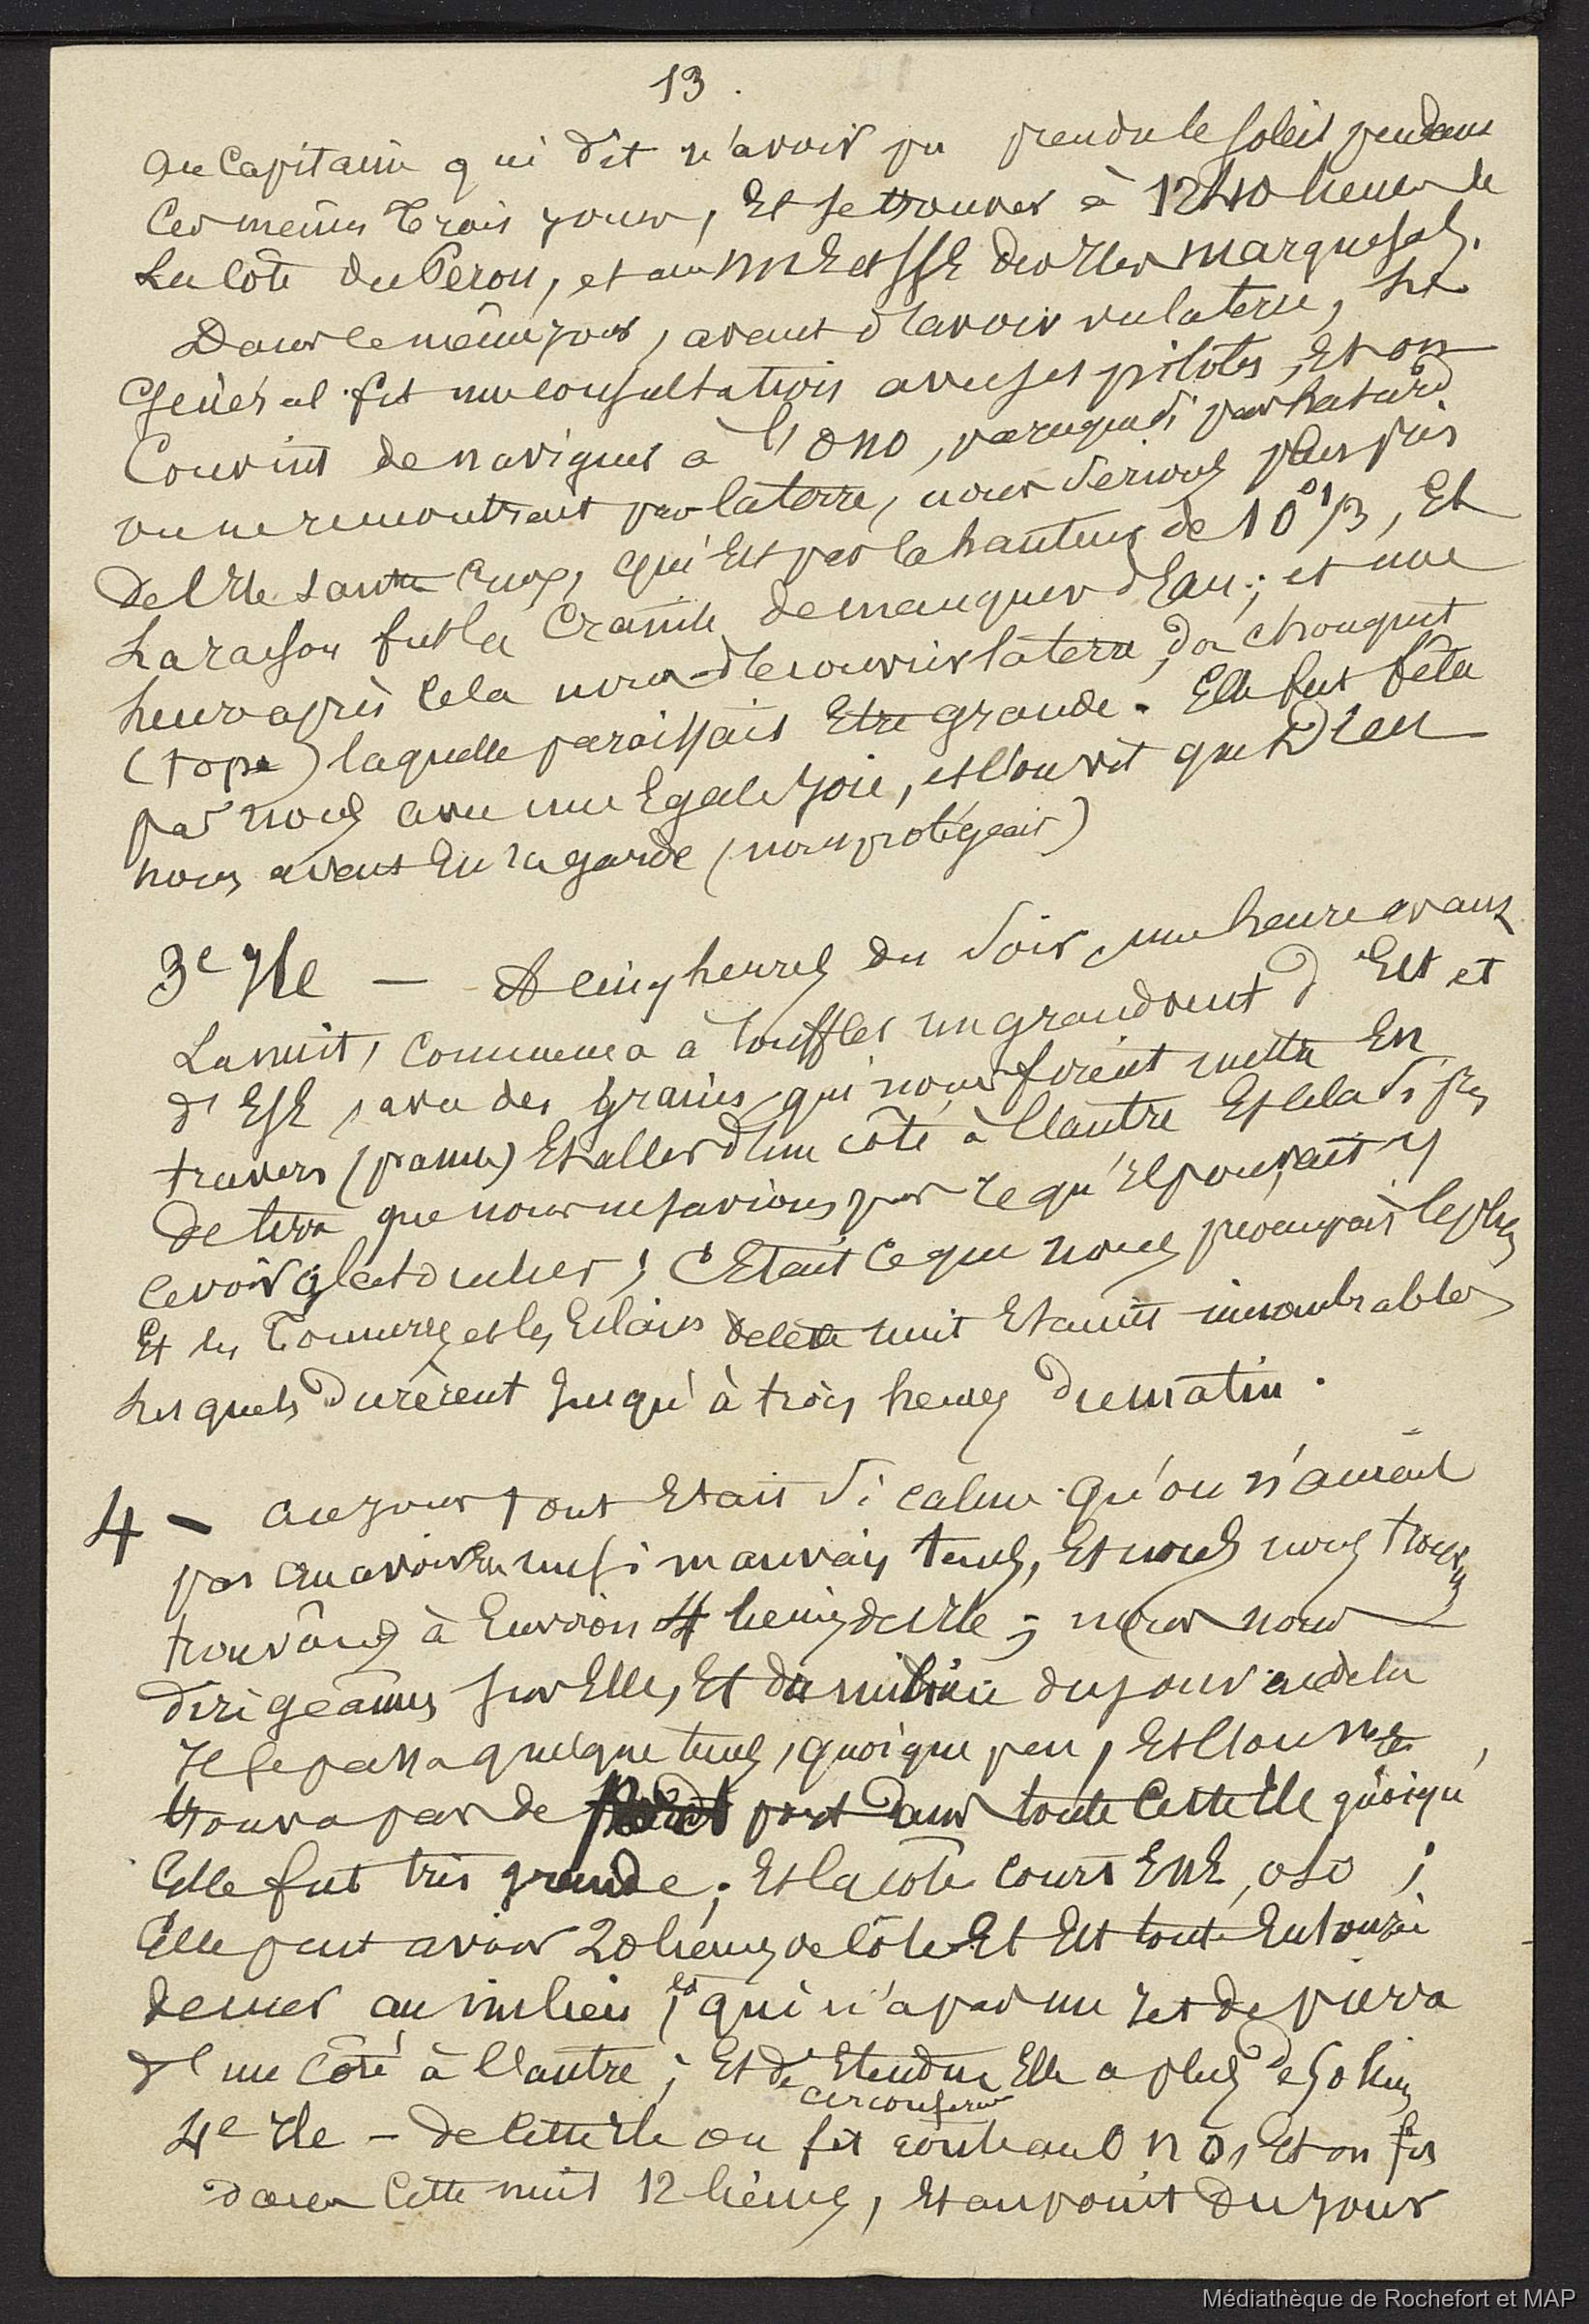 13.
au Capitaine qui dit n'avoir pu prendre le soleil pendant
Ces mêmes trois jours, Et se trouver à 1240 lieues de
La côte du Pérou, et au NNE et SSE des Iles Marquesas.
Dans le même jour, avant d'avoir vu la terre, le
Général fit une consultation avec ses pilotes, Et on
Convint de naviguer à l'ONO, parce que si par hasard
on ne rencontrait pas la terre, nous serions plus près
de l'Ile Santa Cruz, qui Est par la hauteur de 10° 1/3, Et
La raison fut la Crainte de manquer d'Eau; et une
heure après cela nous découvrîmes la terre,
(topa) laquelle paraissait Etre grande. Elle fut fêtée
par nous avec une Egale joie, et l'on vit que Dieu
nous avait En sa garde (nous protégeait)
3e Ile — A cinq heures du soir, une heure avant
La nuit, commença à souffler un grand vent d'Est et
d'ESE, avec des grains qui nous firent mettre En
travers (panne) Et aller d'un côté à l'autre Et cela si près
de terre que nous ne savions pas ce qu'il pouvait y
avoir; C'Etait ce que nous
Et les Tonnerres et les Eclairs de cette nuit Etaient innombrables
Lesquels durèrent jusqu'à trois heures du matin.
4 — au jour tout Etait si calme qu'on n'aurait
pas cru avoir Eu un si mauvais temps, Et nous nous
trouvâmes à Environ 4 lieues de l'Ile; nous nous
dirigeâmes sur Elle, Et du milieu du jour au delà
Il se passa quelque temps, quoique peu, Et l'on ne
trouva pas de port dans toute cette Ile quoiqu'
Elle fut très grande; Et la côte court ENE, OSO;
Elle peut avoir 20 lieues de côte Et Est toute Entourée
de mer au milieu, qui n'a pas un jet de pierre
d'un côté à l'autre; Et d'Etendue Elle a plus de 50 lieues
circonférence
4e Ile — de cette Ile on fit route au ONO, Et on fit
dans cette nuit 12 lieues, Et au point du jour
Médiathèque de Rochefort et MAP